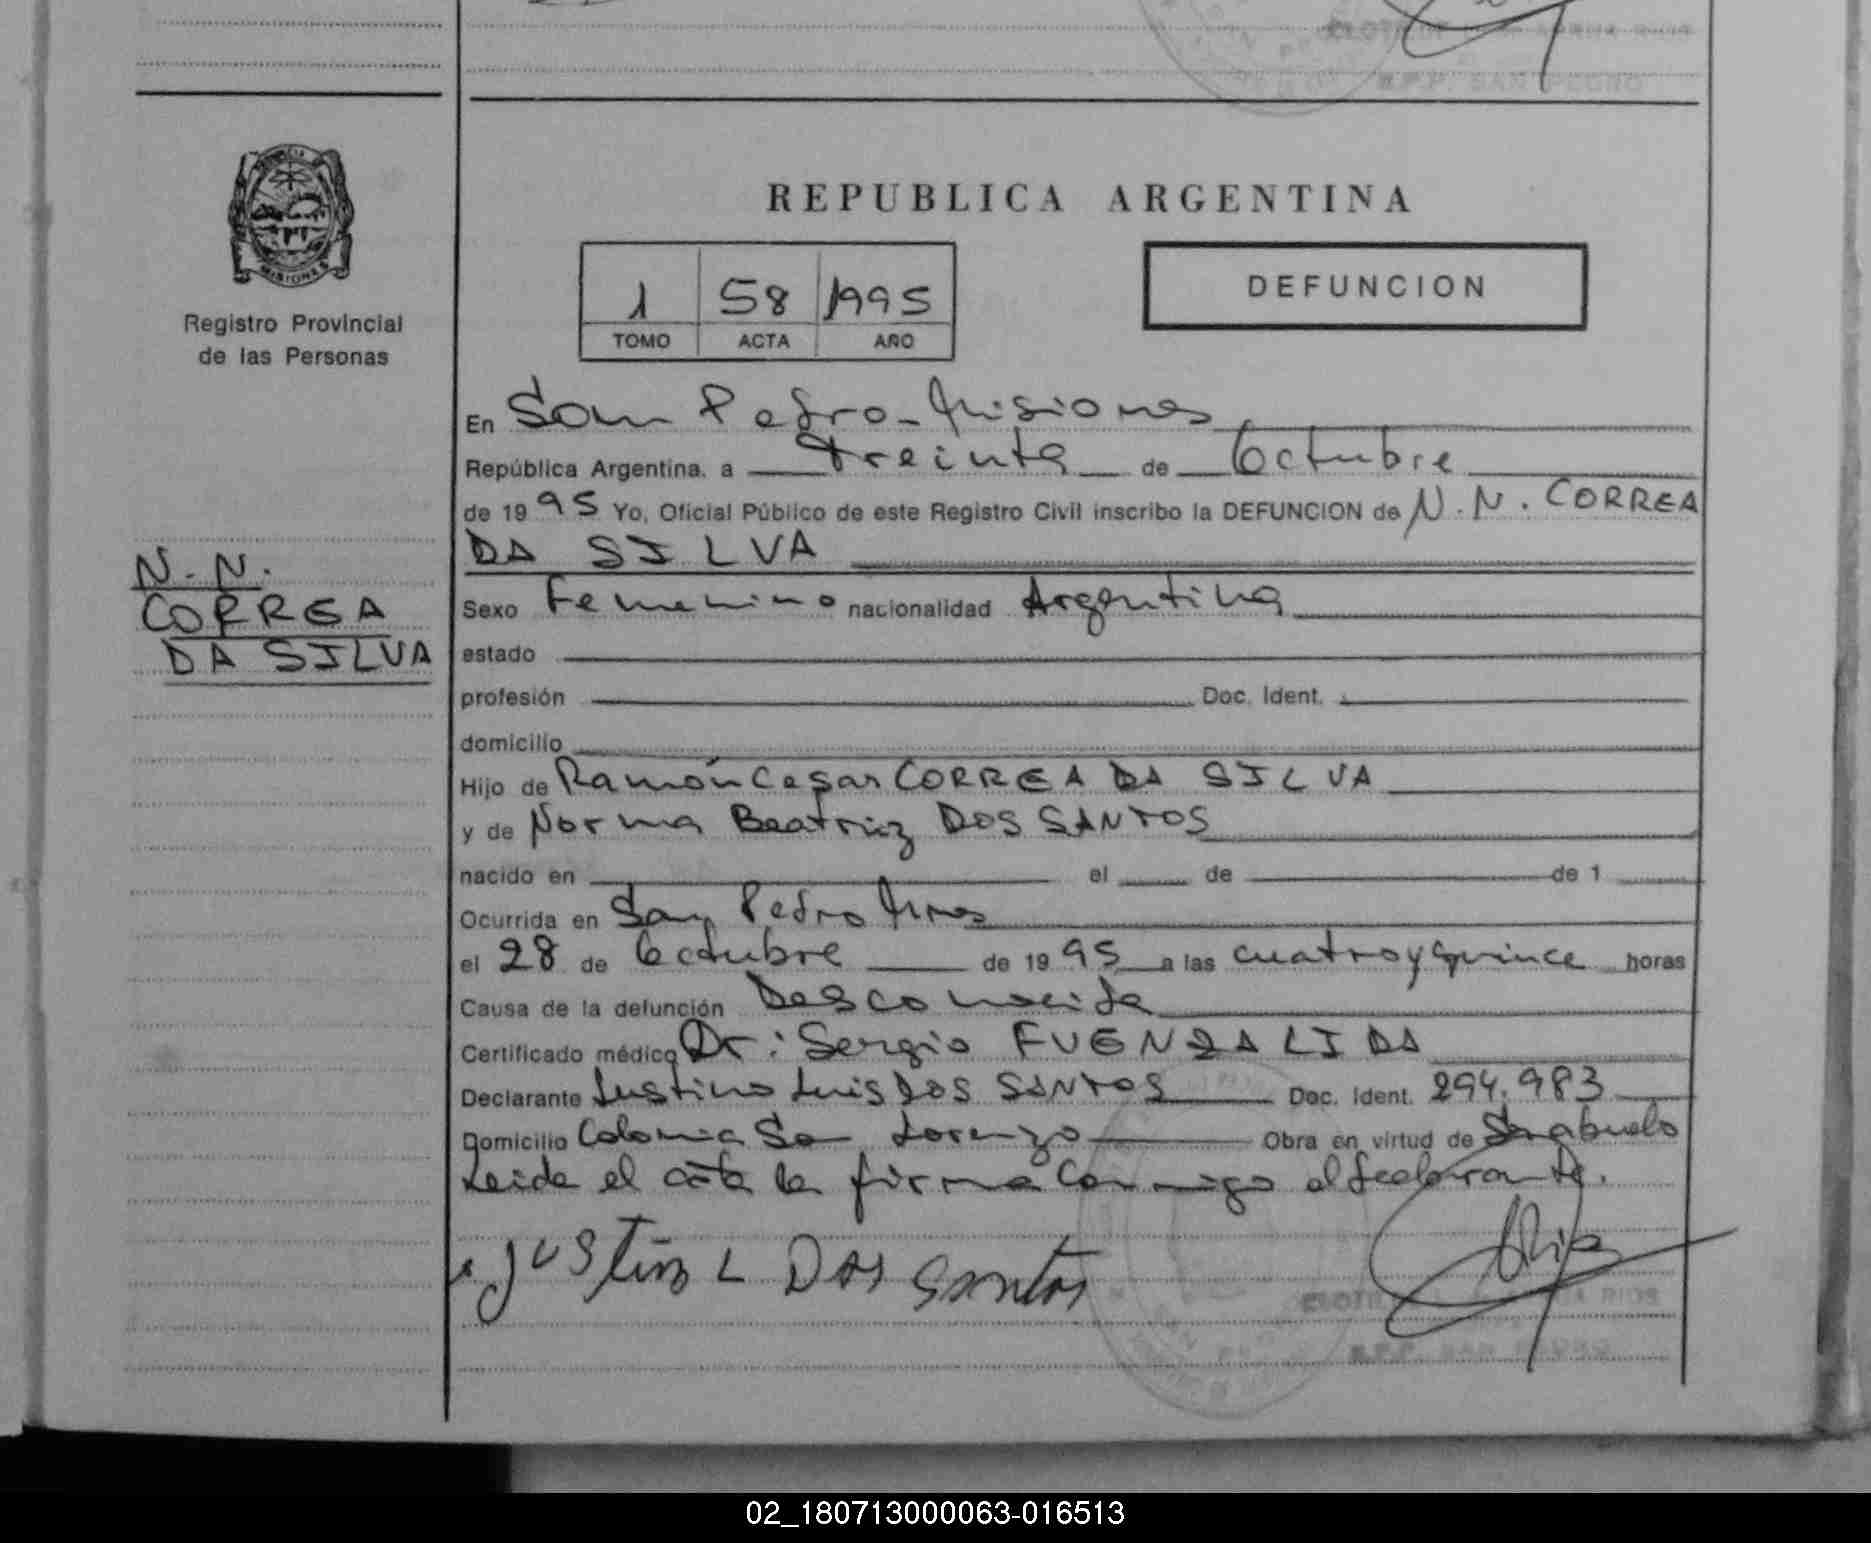 R.P.P. SAN PEDRO
MISIONES
Registro Provincial
de las Personas
N. N.
CORREA
DA SILVA
REPUBLICA ARGENTINA
1 58 1995
TOMO ACTA AÑO
DEFUNCION
En San Pedro - Misiones
República Argentina, a Treinta de Octubre
de 1995 Yo, Oficial Público de este Registro Civil inscribo la DEFUNCION de N. N. CORREA
DA SILVA
Sexo Femenino nacionalidad Argentina
estado
profesión Doc. Ident.
domicilio
Hijo de Ramón Cesar CORREA DA SILVA
y de Norma Beatriz DOS SANTOS
nacido en el de de 1
Ocurrida en San Pedro Mnes
el 28 de Octubre de 1995 a las cuatro y quince horas
Causa de la defunción Desconocida
Certificado médico Dr: Sergio FUENZALIDA
Declarante Justino Luis DOS SANTOS Doc. Ident. 294.983
Domicilio Colonia San Lorenzo Obra en virtud de Ser abuelo
Leida el acta la firma conmigo el declarante.
Justino L Dos Santos
R.P.P. SAN PEDRO
02_180713000063-016513